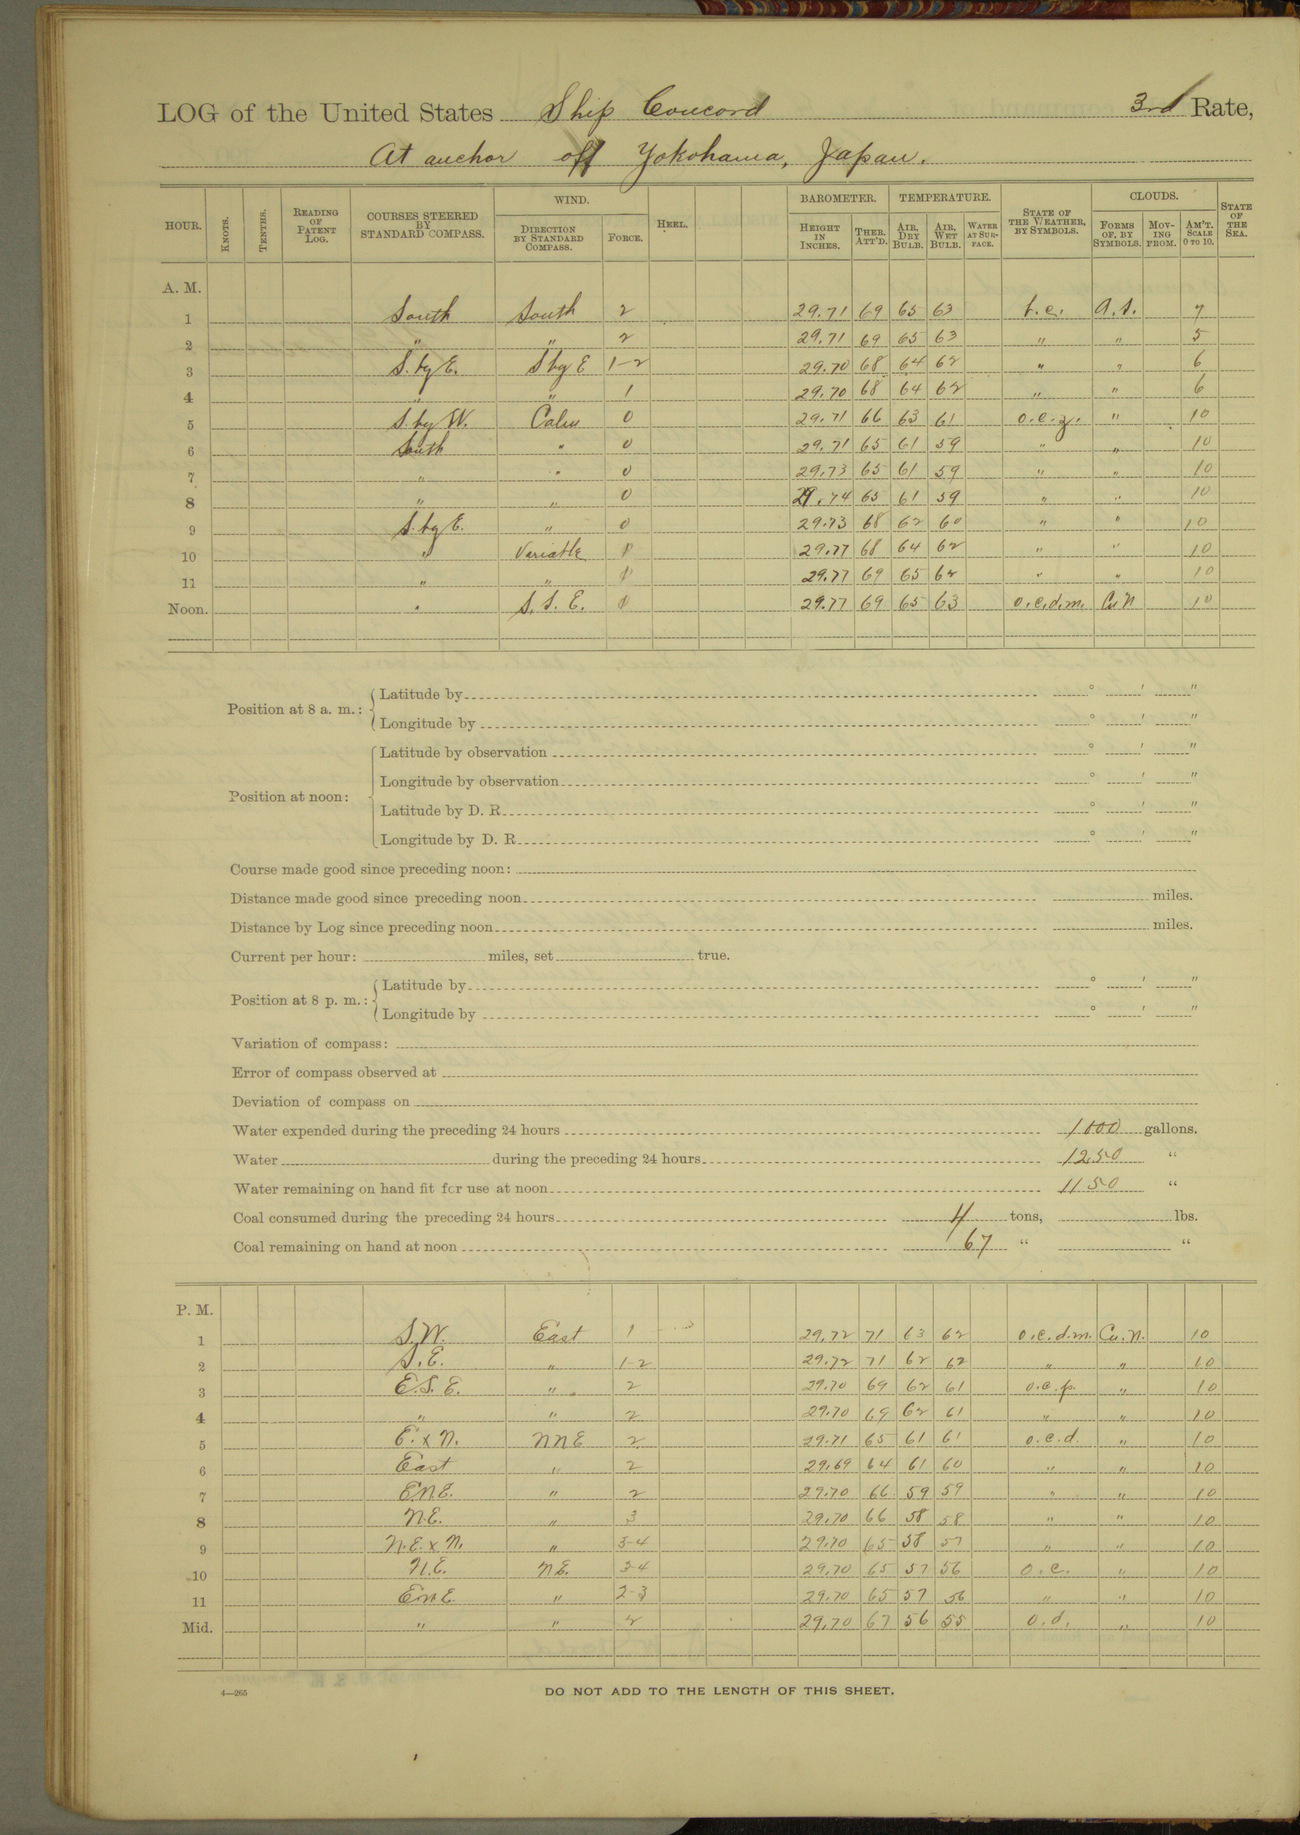 LOG of the United States Ship Concord 3rd Rate,
At anchor off Yokohama, Japan.
HOUR. KNOTS. TENTHS. READING OF PATENT LOG. COURSES STEERED BY STANDARD COMPASS. WIND. DIRECTION BY STANDARD COMPASS. FORCE. HEEL. BAROMETER. HEIGHT IN INCHES. THER. ATT'D. TEMPERATURE. AIR, DRY BULB. AIR, WET BULB. WATER AT SURFACE. STATE OF THE WEATHER, BY SYMBOLS. CLOUDS. FORMS OF, BY SYMBOLS. MOVING FROM. AM'T. SCALE 0 TO 10. STATE OF THE SEA.
A. M.
1 South South 2 29.71 69 65 63 b.c. a.s. 7
2 " " 2 29.71 69 65 63 " " 5
3 S. by E. S by E 1-2 29.70 68 64 62 " " 6
4 " " 1 29.70 68 64 62 " " 6
5 S. by W. Calm 0 29.71 66 63 61 o.c.z. " 10
6 South " 0 29.71 65 61 59 " " 10
7 " " 0 29.73 65 61 59 " " 10
8 " " 0 29.74 65 61 59 " " 10
9 S. by E. " 0 29.73 68 62 60 " " 10
10 " Variable 1 29.77 68 64 62 " " 10
11 " " 1 29.77 69 65 62 " " 10
Noon. " S. S. E. 1 29.77 69 65 63 o.c.d.m. Cu N 10
Position at 8 a. m.: Latitude by ° ' "
Longitude by ° ' "
Position at noon: Latitude by observation ° ' "
Longitude by observation ° ' "
Latitude by D. R. ° ' "
Longitude by D. R. ° ' "
Course made good since preceding noon:
Distance made good since preceding noon miles.
Distance by Log since preceding noon miles.
Current per hour: miles, set true.
Position at 8 p. m.: Latitude by ° ' "
Longitude by ° ' "
Variation of compass:
Error of compass observed at
Deviation of compass on
Water expended during the preceding 24 hours 1000 gallons.
Water during the preceding 24 hours 1250 "
Water remaining on hand fit for use at noon 1150 "
Coal consumed during the preceding 24 hours 4 tons, lbs.
Coal remaining on hand at noon 67 " "
P. M.
1 S.W. East 1 29.72 71 63 62 o.c.d.m. Cu.N. 10
2 S.E. " 1-2 29.72 71 62 62 " " 10
3 E.S.E. " 2 29.70 69 62 61 o.c.p. " 10
4 " " 2 29.70 69 62 61 " " 10
5 E. x N. NNE 2 29.71 65 61 61 o.c.d. " 10
6 East " 2 29.69 64 61 60 " " 10
7 E.N.E. " 2 29.70 66 59 59 " " 10
8 N.E. " 3 29.70 66 58 58 " " 10
9 N.E. x N. " 3-4 29.70 65 58 57 " " 10
10 N.E. N.E. 3-4 29.70 65 57 56 o.c. " 10
11 E.N.E. " 2-3 29.70 65 57 56 " " 10
Mid. " " 2 29.70 67 56 55 o.d. " 10
4—265
DO NOT ADD TO THE LENGTH OF THIS SHEET.